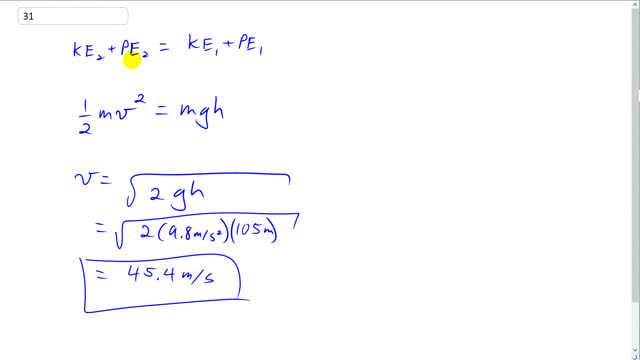 31
KE₂ + PE₂ = KE₁ + PE₁
1/2 mv² = mgh
v = √2gh
= √2(9.8m/s²)(105m)
= 45.4 m/s